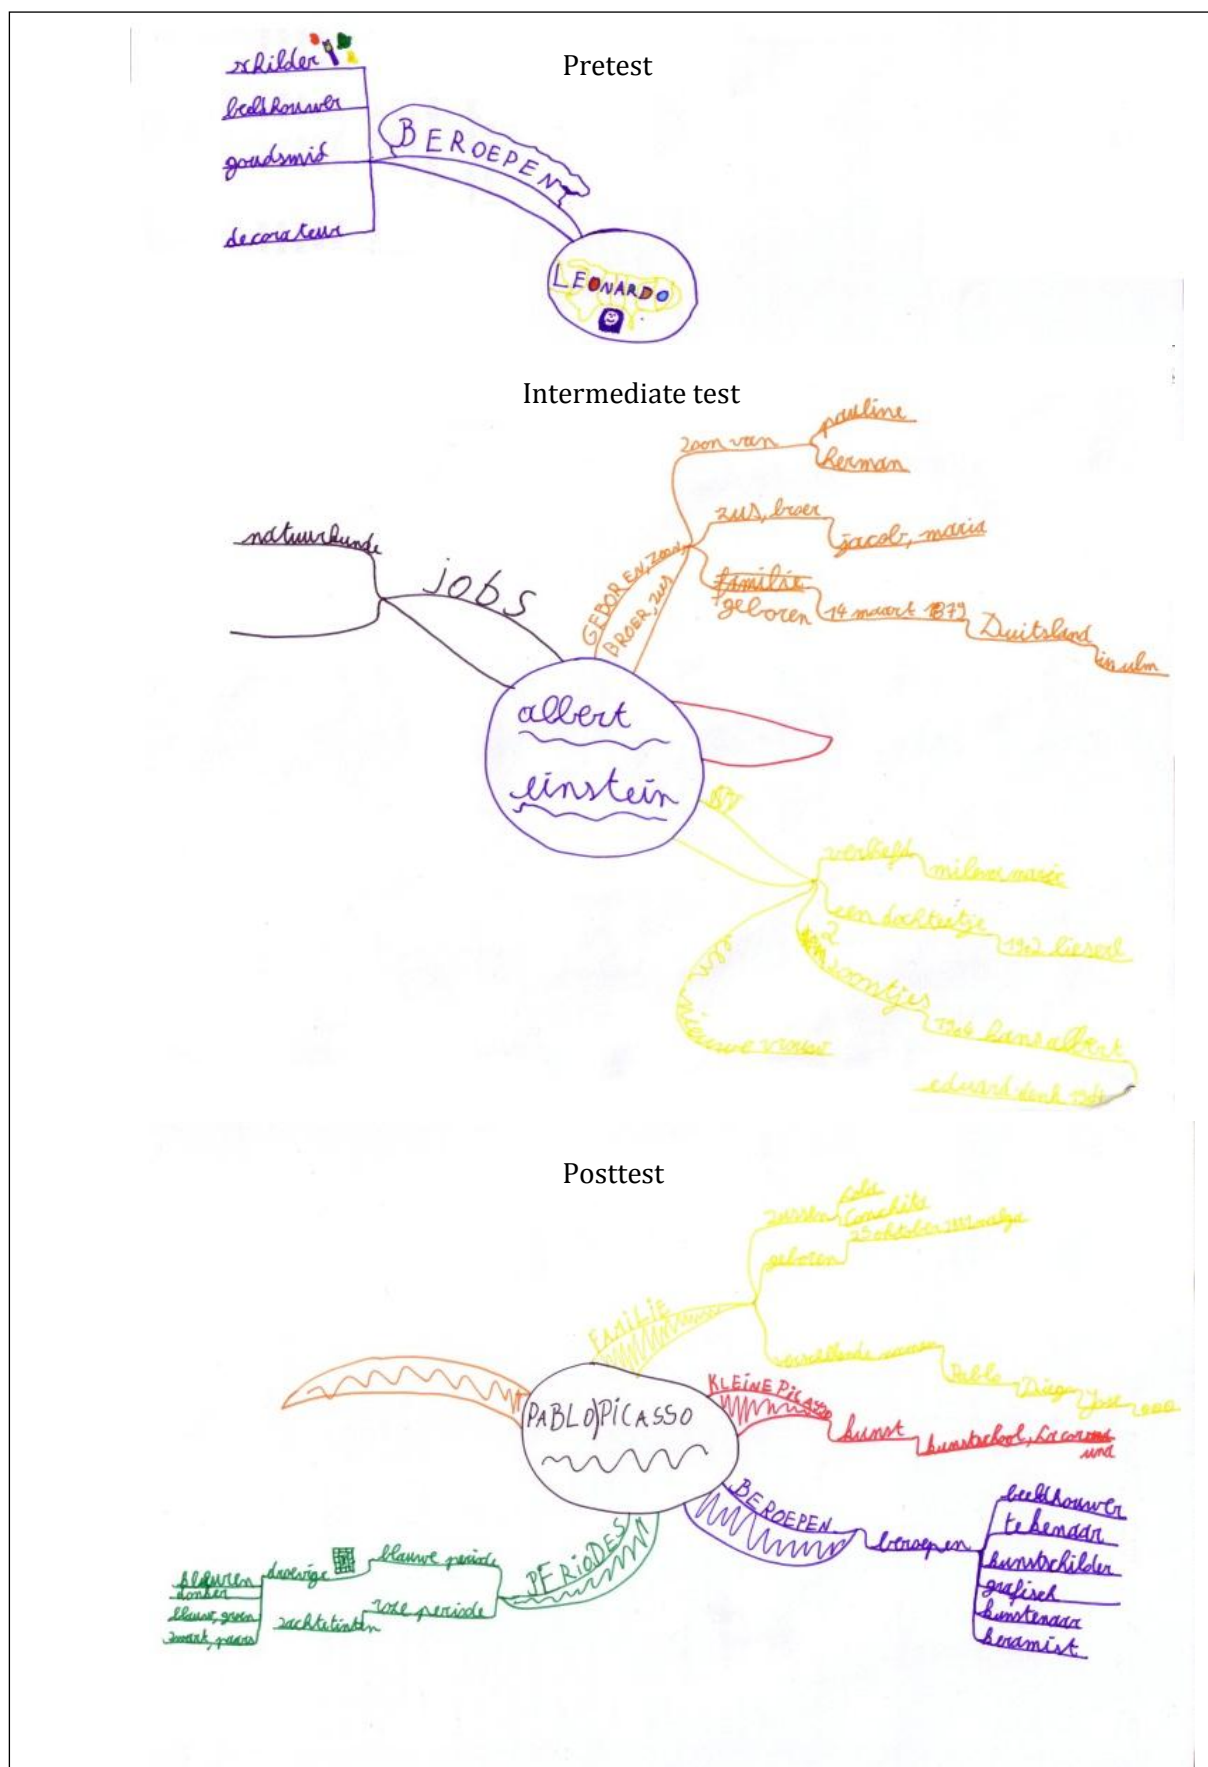 Pretest
schilder
beeldhouwer
goudsmid
decorateur
BEROEPEN
LEONARDO
Intermediate test
natuurkunde
jobs
GEBOREN, ZOON,
BROER, ZUS
zoon van
pauline
herman
zus, broer
jacob, maria
familie
geboren
14 maart 1879
Duitsland
in ulm
albert
einstein
verliefd
mileva maric
een dochtertje
1902 lieserl
2
zoontjes
1904 hans albert
eduard
nieuwe vrouw
Posttest
FAMILIE
zussen
Lola
Conchita
geboren
25 oktober
verschillende namen
Pablo
Diego
Jose
PABLO PICASSO
KLEINE PICASSO
kunst
kunstschool,
BEROEPEN
beroepen
beeldhouwer
tekenaar
kunstschilder
grafisch
kunstenaar
keramist
PERIODES
blauwe periode
droevige
kleuren
donker
blauw, groen
zwart, paars
roze periode
zachte tinten